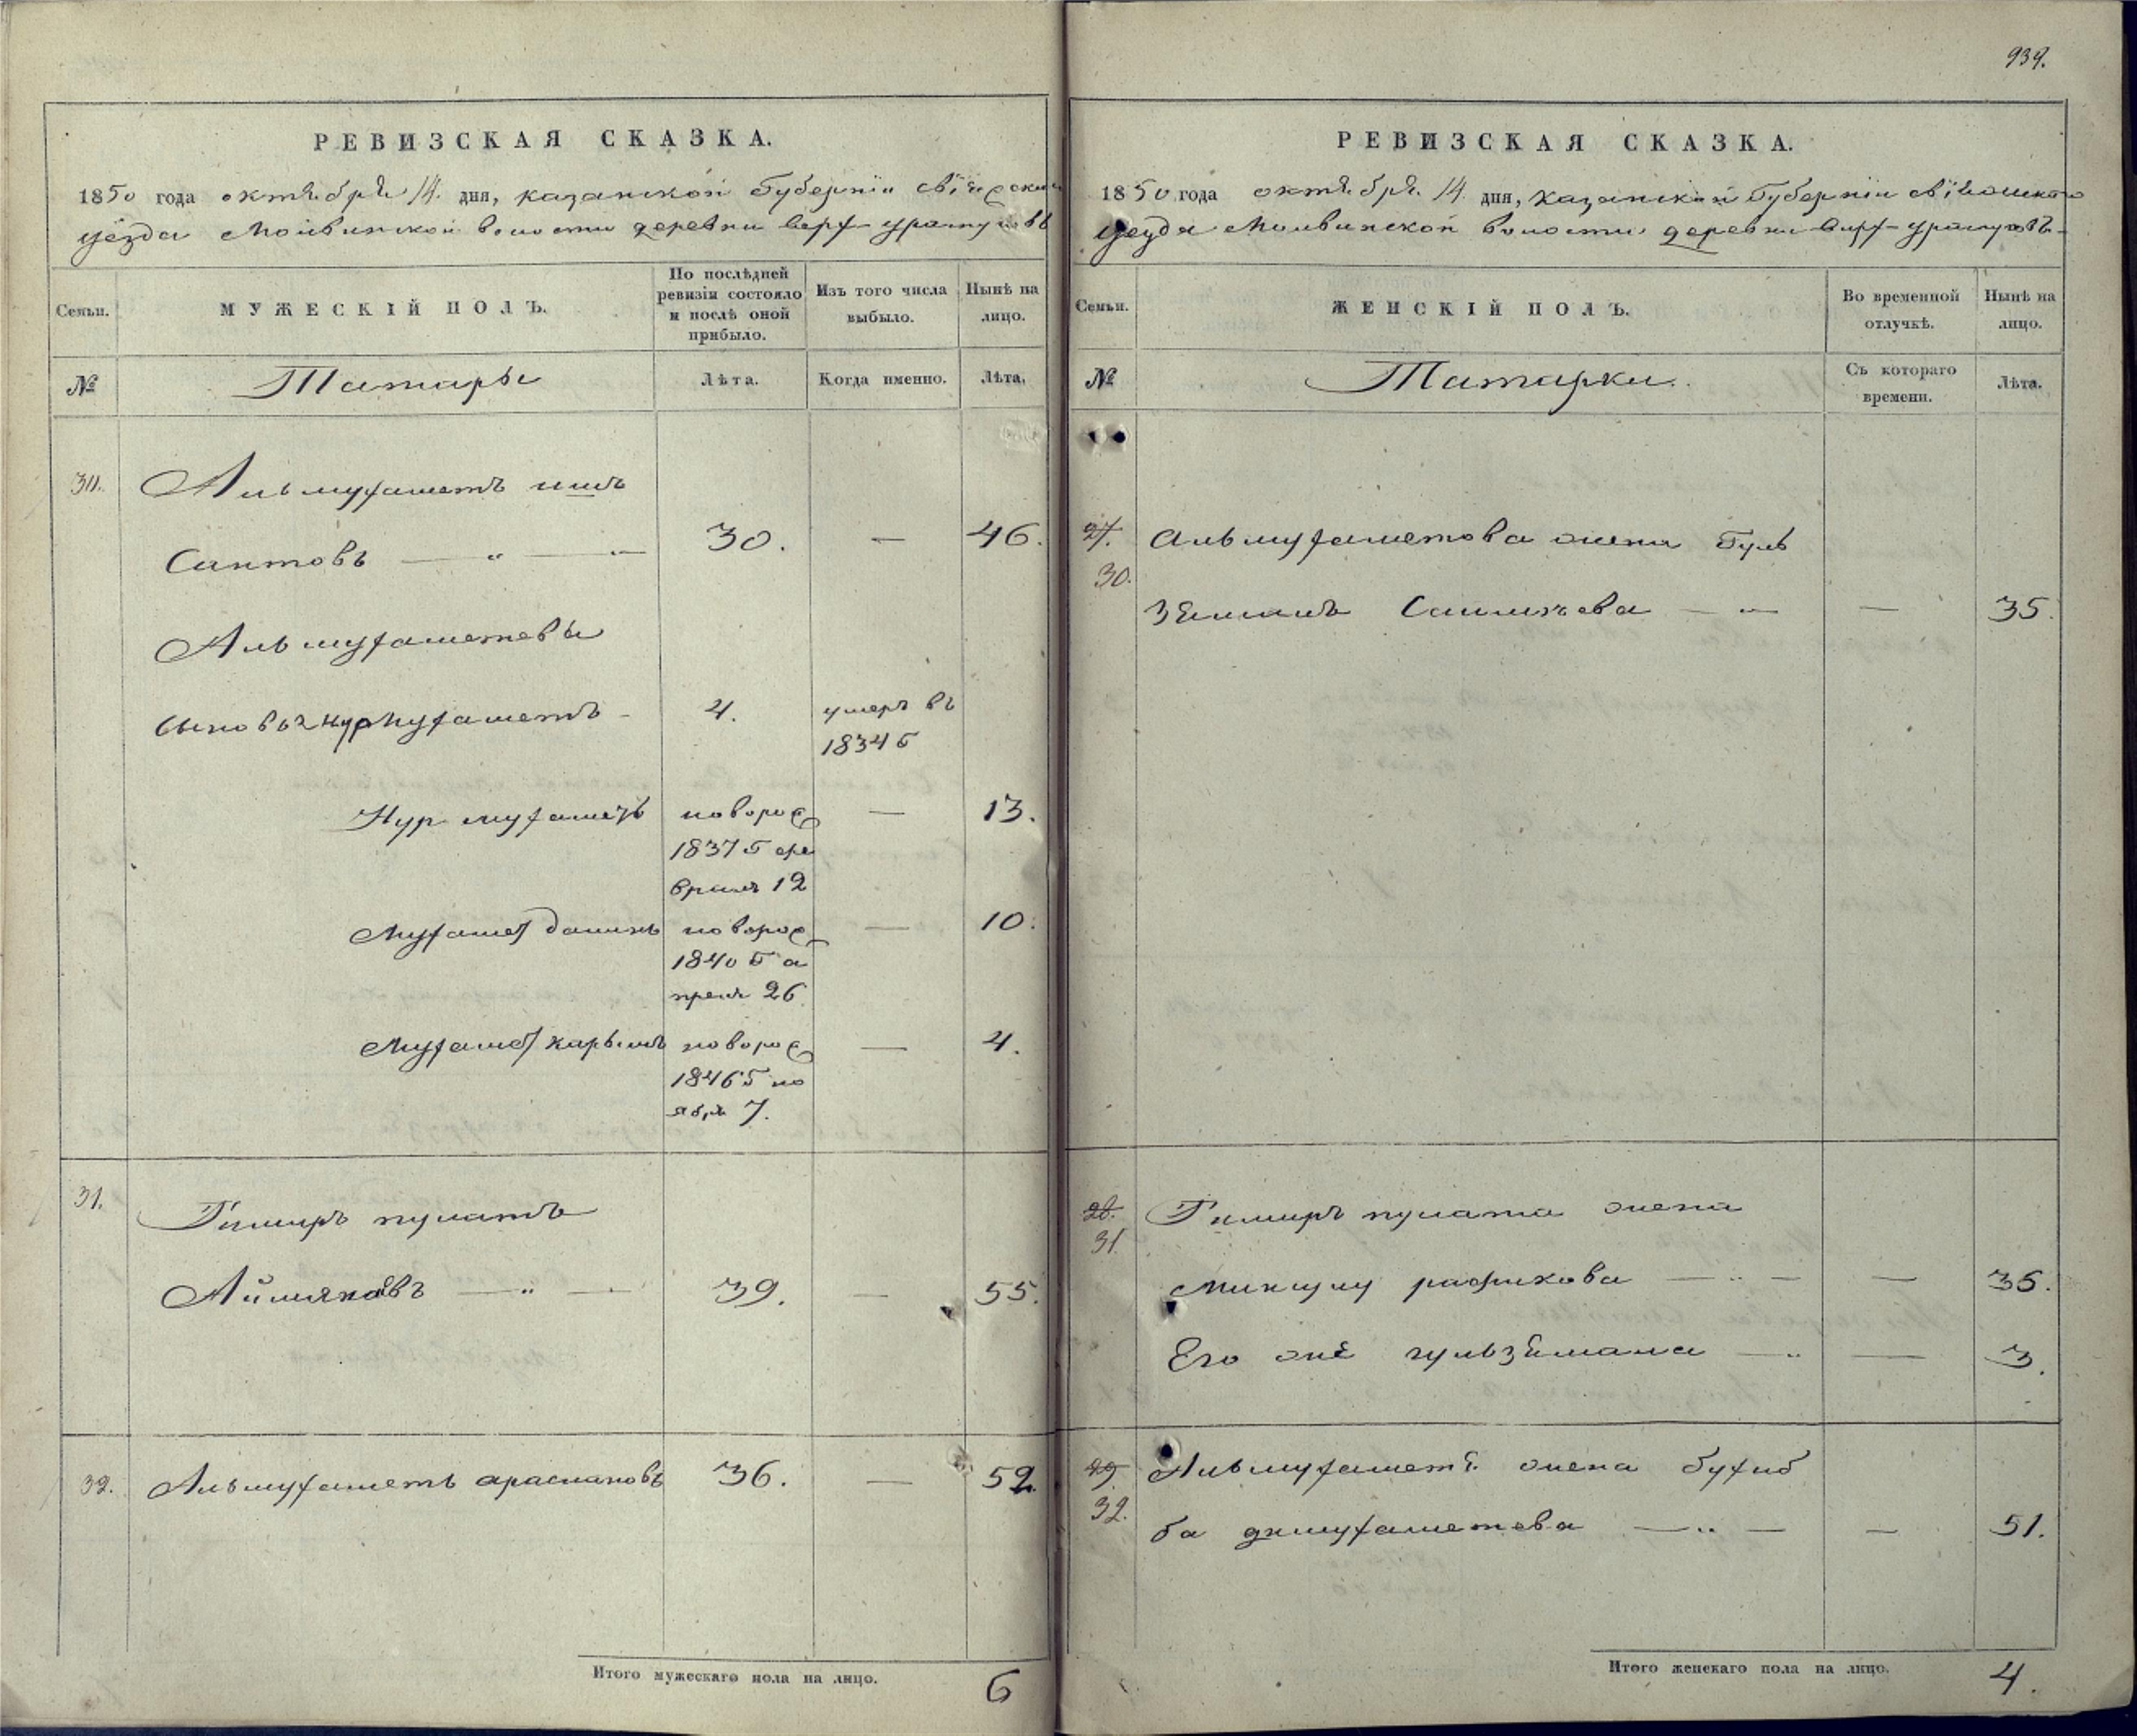 939.
РЕВИЗСКАЯ СКАЗКА.
1850 года октября 14 дня, казанской Губерніи свіяжскаго
уезда Молвинской волости деревни верх-уратуговъ
Семьи.
МУЖЕСКІЙ ПОЛЪ.
По послѣдней ревизіи состояло и послѣ оной прибыло.
Изъ того числа выбыло.
Нынѣ на лицо.
№
Татары
Лѣта.
Когда именно.
Лѣта.
30. Альмухаметъ
Саитовъ — " — " — 30. — 46.
Альмухаметевы
сыновья Нурмухаметъ - 4. умеръ въ
1834 г
Нурмухаметъ новорож — 13.
1837 г фе
враля 12
Мухамет новорож — 10.
1840 г а
преля 26
Мухамет карымъ новорож — 4.
1846 г но
ября 7.
31. Тимиръ пулатъ
— " — 39. — 55.
32. Альмухаметъ араслановъ 36. — 52.
Итого мужескаго пола на лицо. 6
РЕВИЗСКАЯ СКАЗКА.
1850 года октября 14 дня, казанской Губерніи свіяжскаго
уезда Молвинской волости деревни верх-уратуговъ
Семьи.
ЖЕНСКІЙ ПОЛЪ.
Во временной отлучкѣ.
Нынѣ на лицо.
№
Татарки.
Съ котораго времени.
Лѣта.
27. Альмухаметова жена Гуль
30.
— " — — 35.
28. Тимиръ пулата жена
31.
рафикова — " — — 35.
Его — " — 3.
29. Альмухаметя жена бухиб
32.
ба — " — — 51.
Итого женскаго пола на лицо. 4.